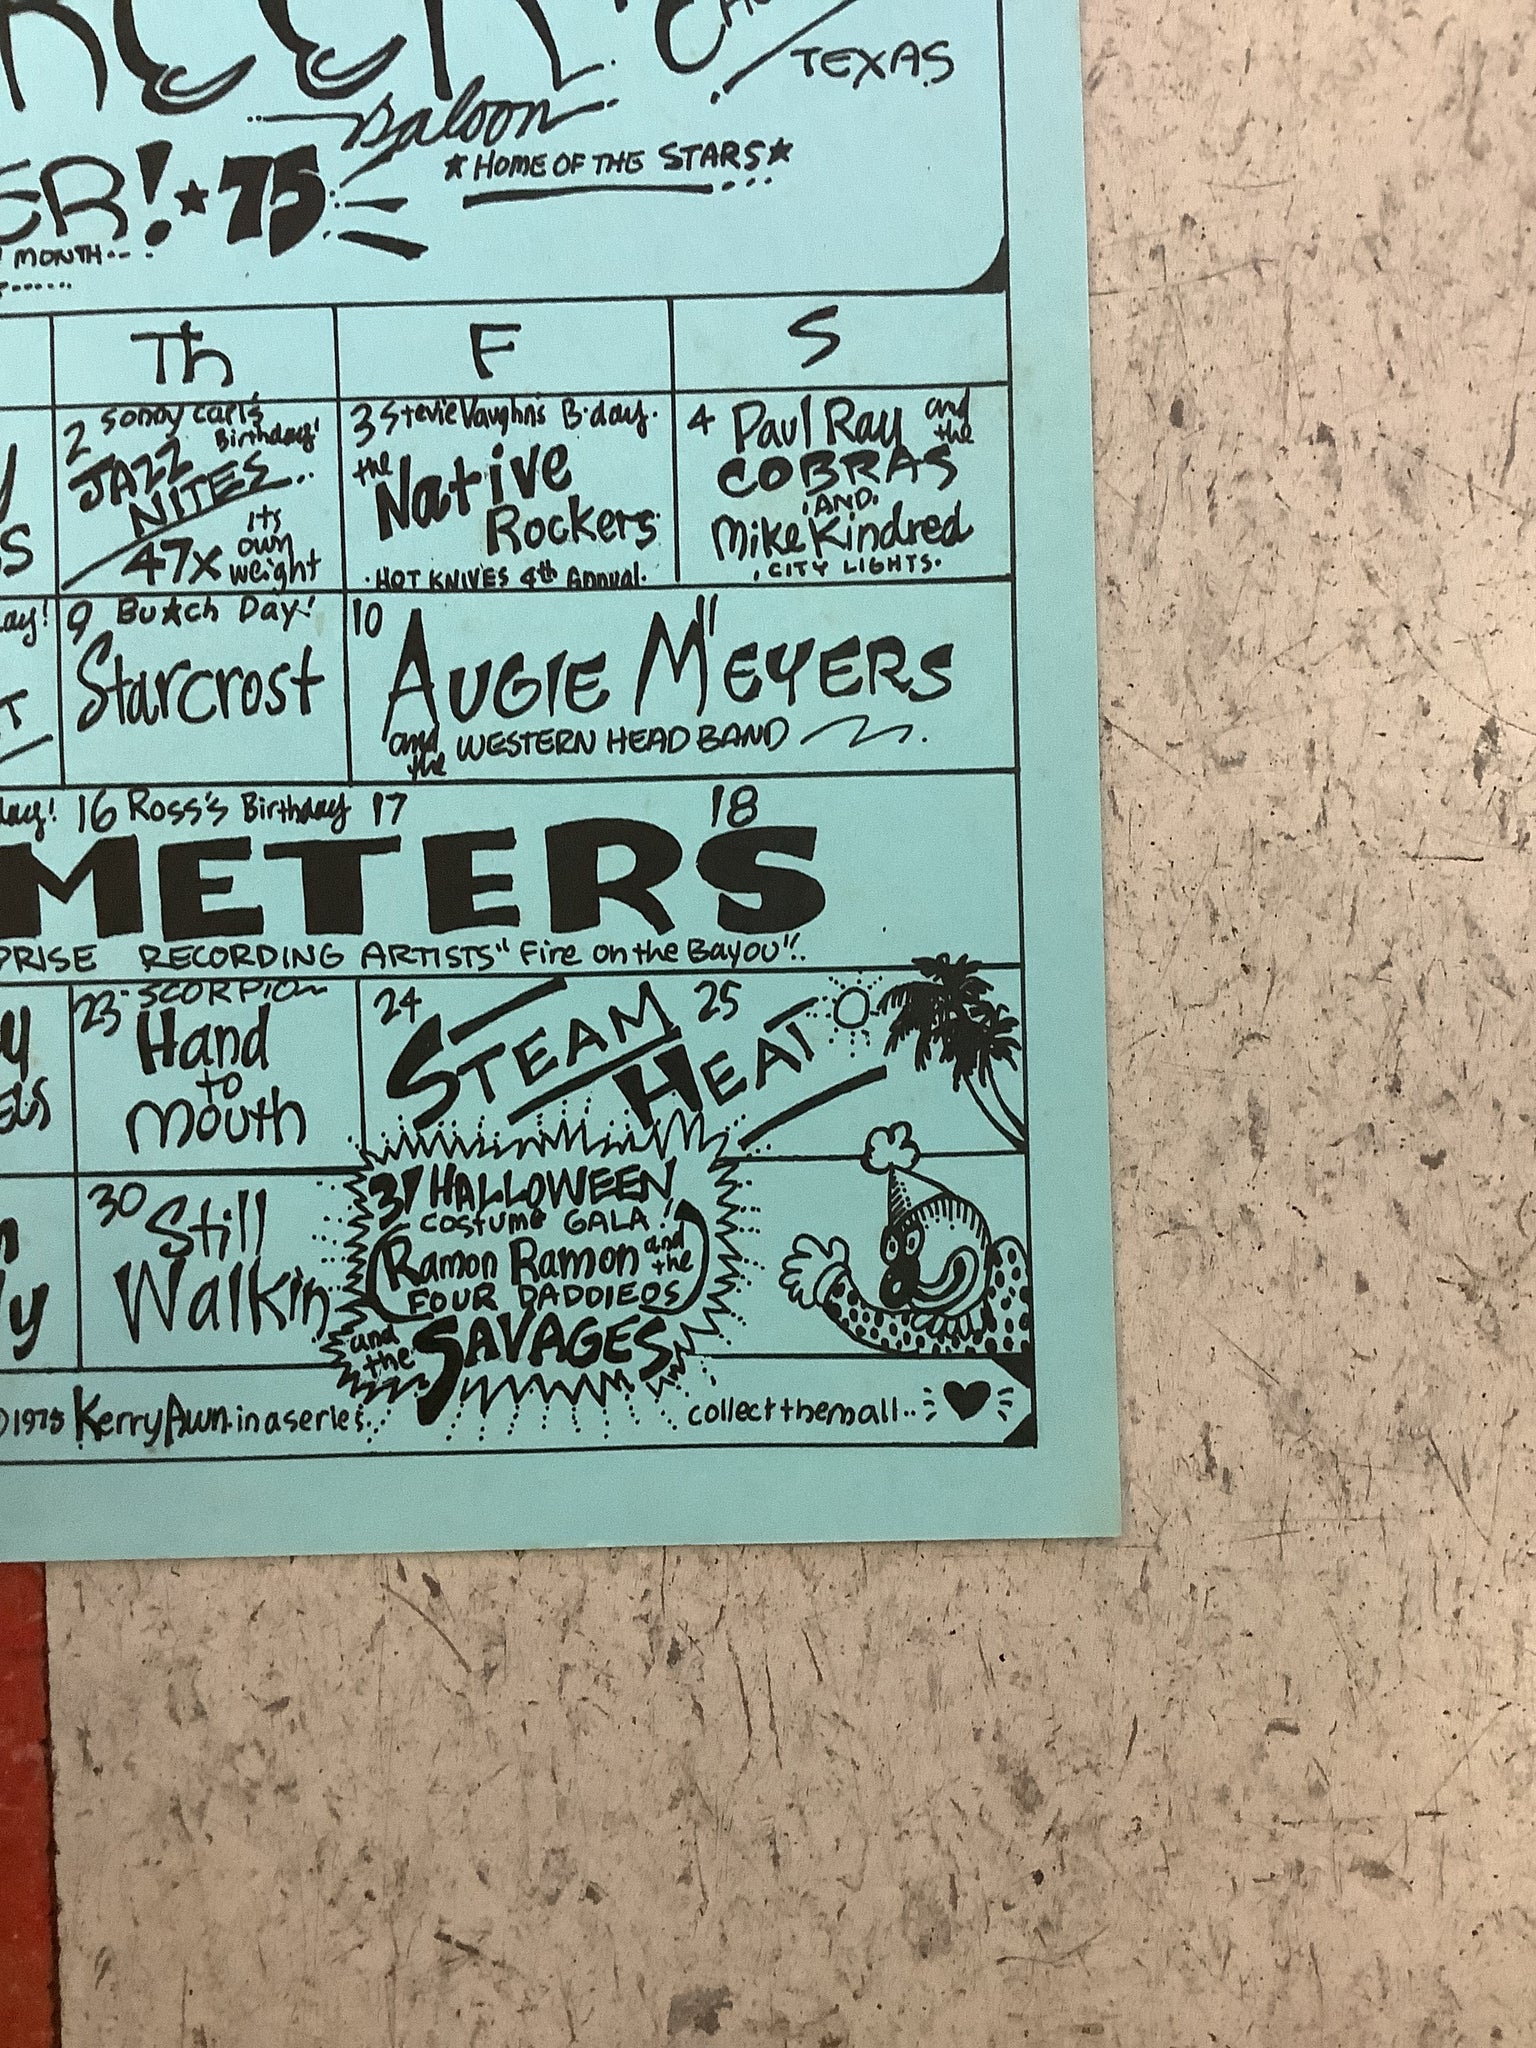 TEXAS
Saloon
★ HOME OF THE STARS ★
ER! ★ 75
MONTH...
Th F S
2 Sonny Carl's Birthday!
JAZZ NITES..
47x its own weight
3 Stevie Vaughn's B-day.
the Native Rockers
.HOT KNIVES 4th Annual.
4 Paul Ray and the
COBRAS
.AND.
Mike Kindred
.CITY LIGHTS.
ay!
9 Bu★ch Day!
Starcrost
10 11
AUGIE MEYERS
and the WESTERN HEAD BAND
day! 16 Ross's Birthday 17 18
METERS
PRISE RECORDING ARTISTS "Fire on the Bayou"..
23 - SCORPION
Hand
to
Mouth
24 25
STEAM
HEAT
30 Still
Walkin
31 HALLOWEEN
COSTUME GALA!
Ramon Ramon and the
FOUR DADDIEOS
and the SAVAGES
©1975 Kerry Awn. in a series.
collect them all..